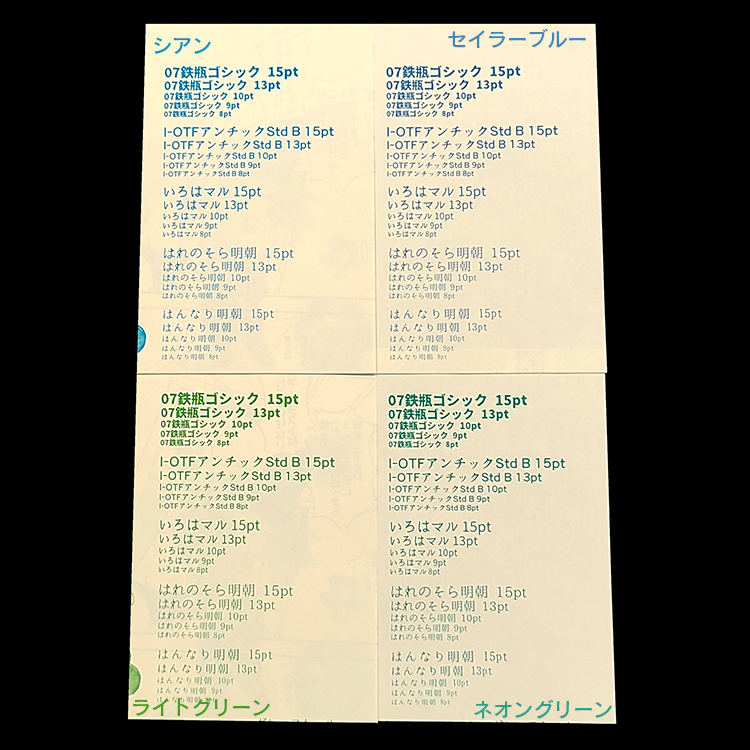 シアン
07鉄瓶ゴシック 15pt
07鉄瓶ゴシック 13pt
07鉄瓶ゴシック 10pt
07鉄瓶ゴシック 9pt
07鉄瓶ゴシック 8pt
I-OTFアンチックStd B 15pt
I-OTFアンチックStd B 13pt
I-OTFアンチックStd B 10pt
I-OTFアンチックStd B 9pt
I-OTFアンチックStd B 8pt
いろはマル 15pt
いろはマル 13pt
いろはマル 10pt
いろはマル 9pt
いろはマル 8pt
はれのそら明朝 15pt
はれのそら明朝 13pt
はれのそら明朝 10pt
はれのそら明朝 9pt
はれのそら明朝 8pt
はんなり明朝 15pt
はんなり明朝 13pt
はんなり明朝 10pt
はんなり明朝 9pt
はんなり明朝 8pt
セイラーブルー
07鉄瓶ゴシック 15pt
07鉄瓶ゴシック 13pt
07鉄瓶ゴシック 10pt
07鉄瓶ゴシック 9pt
07鉄瓶ゴシック 8pt
I-OTFアンチックStd B 15pt
I-OTFアンチックStd B 13pt
I-OTFアンチックStd B 10pt
I-OTFアンチックStd B 9pt
I-OTFアンチックStd B 8pt
いろはマル 15pt
いろはマル 13pt
いろはマル 10pt
いろはマル 9pt
いろはマル 8pt
はれのそら明朝 15pt
はれのそら明朝 13pt
はれのそら明朝 10pt
はれのそら明朝 9pt
はれのそら明朝 8pt
はんなり明朝 15pt
はんなり明朝 13pt
はんなり明朝 10pt
はんなり明朝 9pt
はんなり明朝 8pt
07鉄瓶ゴシック 15pt
07鉄瓶ゴシック 13pt
07鉄瓶ゴシック 10pt
07鉄瓶ゴシック 9pt
07鉄瓶ゴシック 8pt
I-OTFアンチックStd B 15pt
I-OTFアンチックStd B 13pt
I-OTFアンチックStd B 10pt
I-OTFアンチックStd B 9pt
I-OTFアンチックStd B 8pt
いろはマル 15pt
いろはマル 13pt
いろはマル 10pt
いろはマル 9pt
いろはマル 8pt
はれのそら明朝 15pt
はれのそら明朝 13pt
はれのそら明朝 10pt
はれのそら明朝 9pt
はれのそら明朝 8pt
はんなり明朝 15pt
はんなり明朝 13pt
はんなり明朝 10pt
はんなり明朝 9pt
はんなり明朝 8pt
ライトグリーン
07鉄瓶ゴシック 15pt
07鉄瓶ゴシック 13pt
07鉄瓶ゴシック 10pt
07鉄瓶ゴシック 9pt
07鉄瓶ゴシック 8pt
I-OTFアンチックStd B 15pt
I-OTFアンチックStd B 13pt
I-OTFアンチックStd B 10pt
I-OTFアンチックStd B 9pt
I-OTFアンチックStd B 8pt
いろはマル 15pt
いろはマル 13pt
いろはマル 10pt
いろはマル 9pt
いろはマル 8pt
はれのそら明朝 15pt
はれのそら明朝 13pt
はれのそら明朝 10pt
はれのそら明朝 9pt
はれのそら明朝 8pt
はんなり明朝 15pt
はんなり明朝 13pt
はんなり明朝 10pt
はんなり明朝 9pt
はんなり明朝 8pt
ネオングリーン